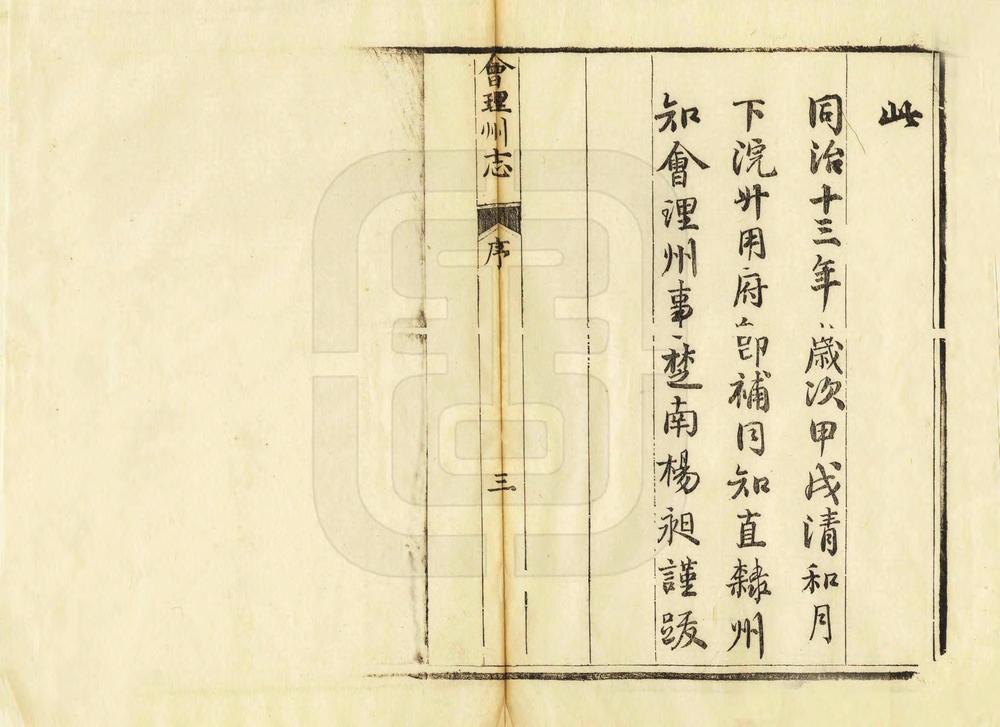 此
同治十三年歲次甲戌清和月
下浣升用府卽補同知直隸州
知會理州事楚南楊昶謹跋
會理州志
序
三